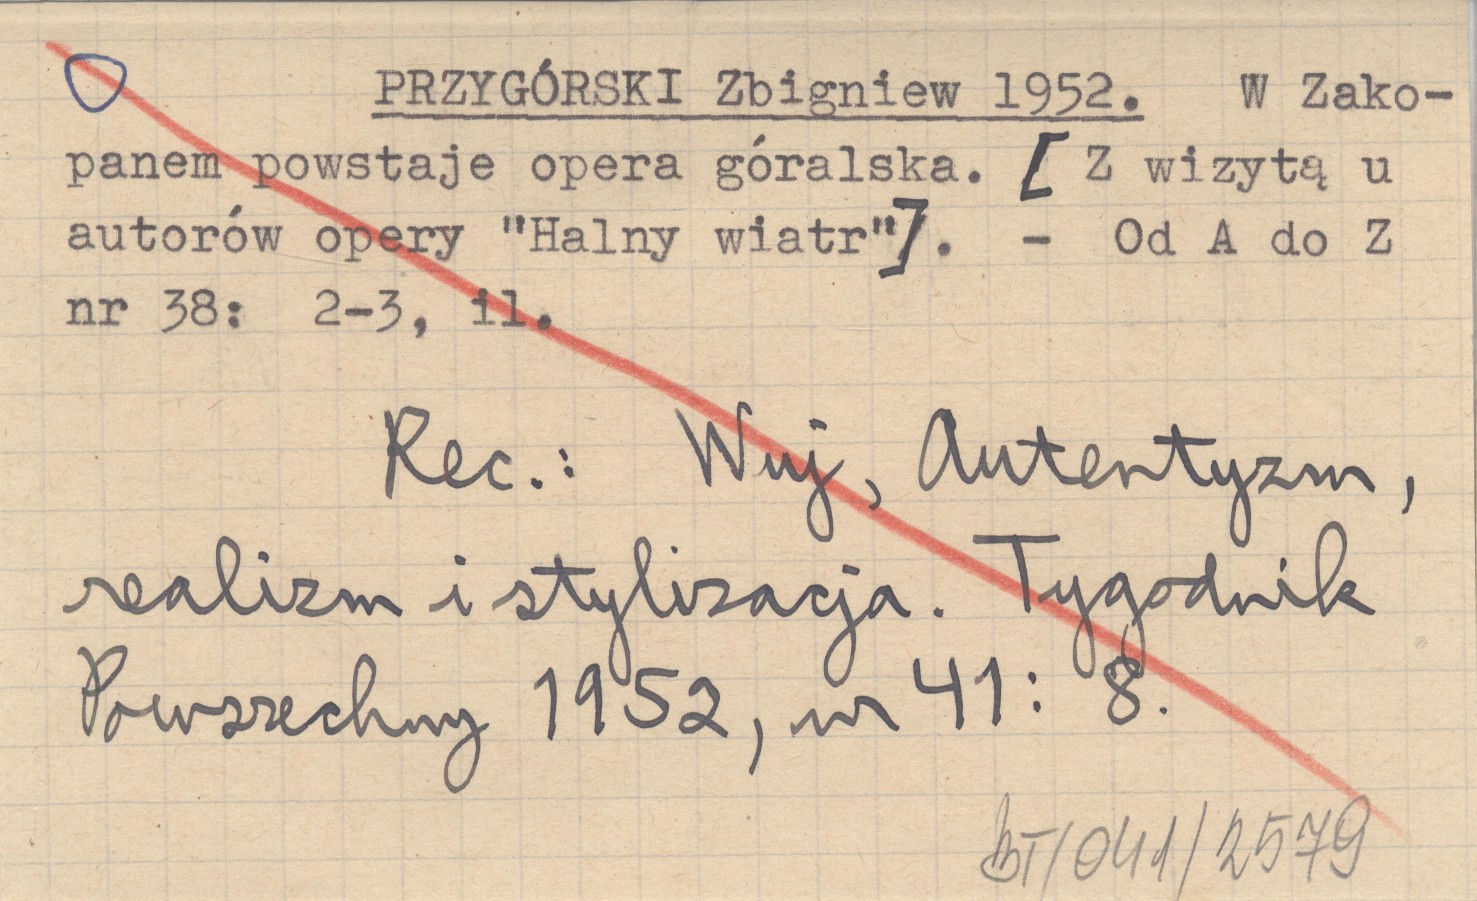 PRZYGÓRSKI Zbigniew 1952. W Zako-
panem powstaje opera góralska. [Z wizytą u
autorów opery "Halny wiatr"]. - Od A do Z
nr 38: 2-3, il.
Rec.: Wuj, Autentyzm,
realizm i stylizacja. Tygodnik
Powszechny 1952, nr 41: 8.
BT/041/2579